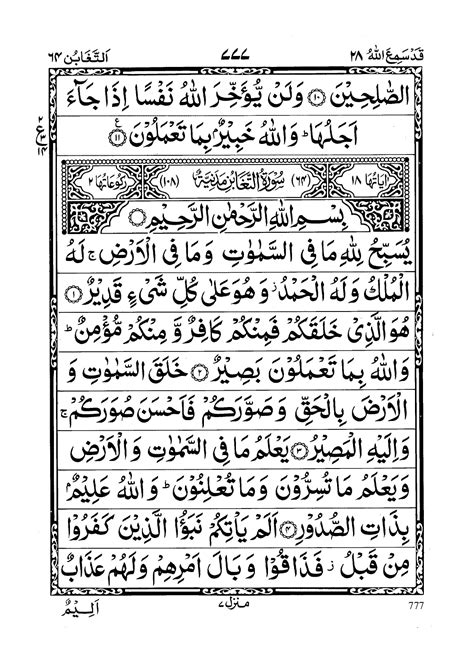 قَدْ سَمِعَ اللهُ ٢٨ ٧٧٧ اَلتَّغَابُن ٦٤
الصّٰلِحِيْنَ ۝١٠ وَلَنْ يُّؤَخِّرَ اللهُ نَفْسًا اِذَا جَآءَ
اَجَلُهَا ؕ وَاللهُ خَبِيْرٌۢ بِمَا تَعْمَلُوْنَ ۝١١
ع
٢
٣
١٤
اٰيَاتُهَا ١٨ (٦٤) سُوْرَةُ التَّغَابُنِ مَدَنِيَّةٌ (١٠٨) رُكُوْعَاتُهَا ٢
بِسْمِ اللهِ الرَّحْمٰنِ الرَّحِيْمِ ۝
يُسَبِّحُ لِلّٰهِ مَا فِى السَّمٰوٰتِ وَمَا فِى الْاَرْضِ ۚ لَهُ
الْمُلْكُ وَلَهُ الْحَمْدُ ؗ وَهُوَ عَلٰى كُلِّ شَىْءٍ قَدِيْرٌ ۝١
هُوَ الَّذِىْ خَلَقَكُمْ فَمِنْكُمْ كَافِرٌ وَّ مِنْكُمْ مُّؤْمِنٌ ؕ
وَاللهُ بِمَا تَعْمَلُوْنَ بَصِيْرٌ ۝٢ خَلَقَ السَّمٰوٰتِ وَ
الْاَرْضَ بِالْحَقِّ وَصَوَّرَكُمْ فَاَحْسَنَ صُوَرَكُمْ ۚ
وَاِلَيْهِ الْمَصِيْرُ ۝٣ يَعْلَمُ مَا فِى السَّمٰوٰتِ وَالْاَرْضِ
وَيَعْلَمُ مَا تُسِرُّوْنَ وَمَا تُعْلِنُوْنَ ؕ وَاللهُ عَلِيْمٌۢ
بِذَاتِ الصُّدُوْرِ ۝٤ اَلَمْ يَاْتِكُمْ نَبَؤُا الَّذِيْنَ كَفَرُوْا
مِنْ قَبْلُ ؗ فَذَاقُوْا وَبَالَ اَمْرِهِمْ وَلَهُمْ عَذَابٌ
اَلِيْمٌ
منزل ٧
777